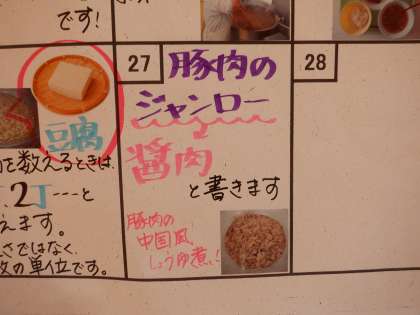 です!
豆腐
を数えるときは、
2丁---と
えます。
さではなく、
の単位です。
27
豚肉の
ジャンロー
醤肉
と書きます
豚肉の
中国風
しょうゆ煮!
28